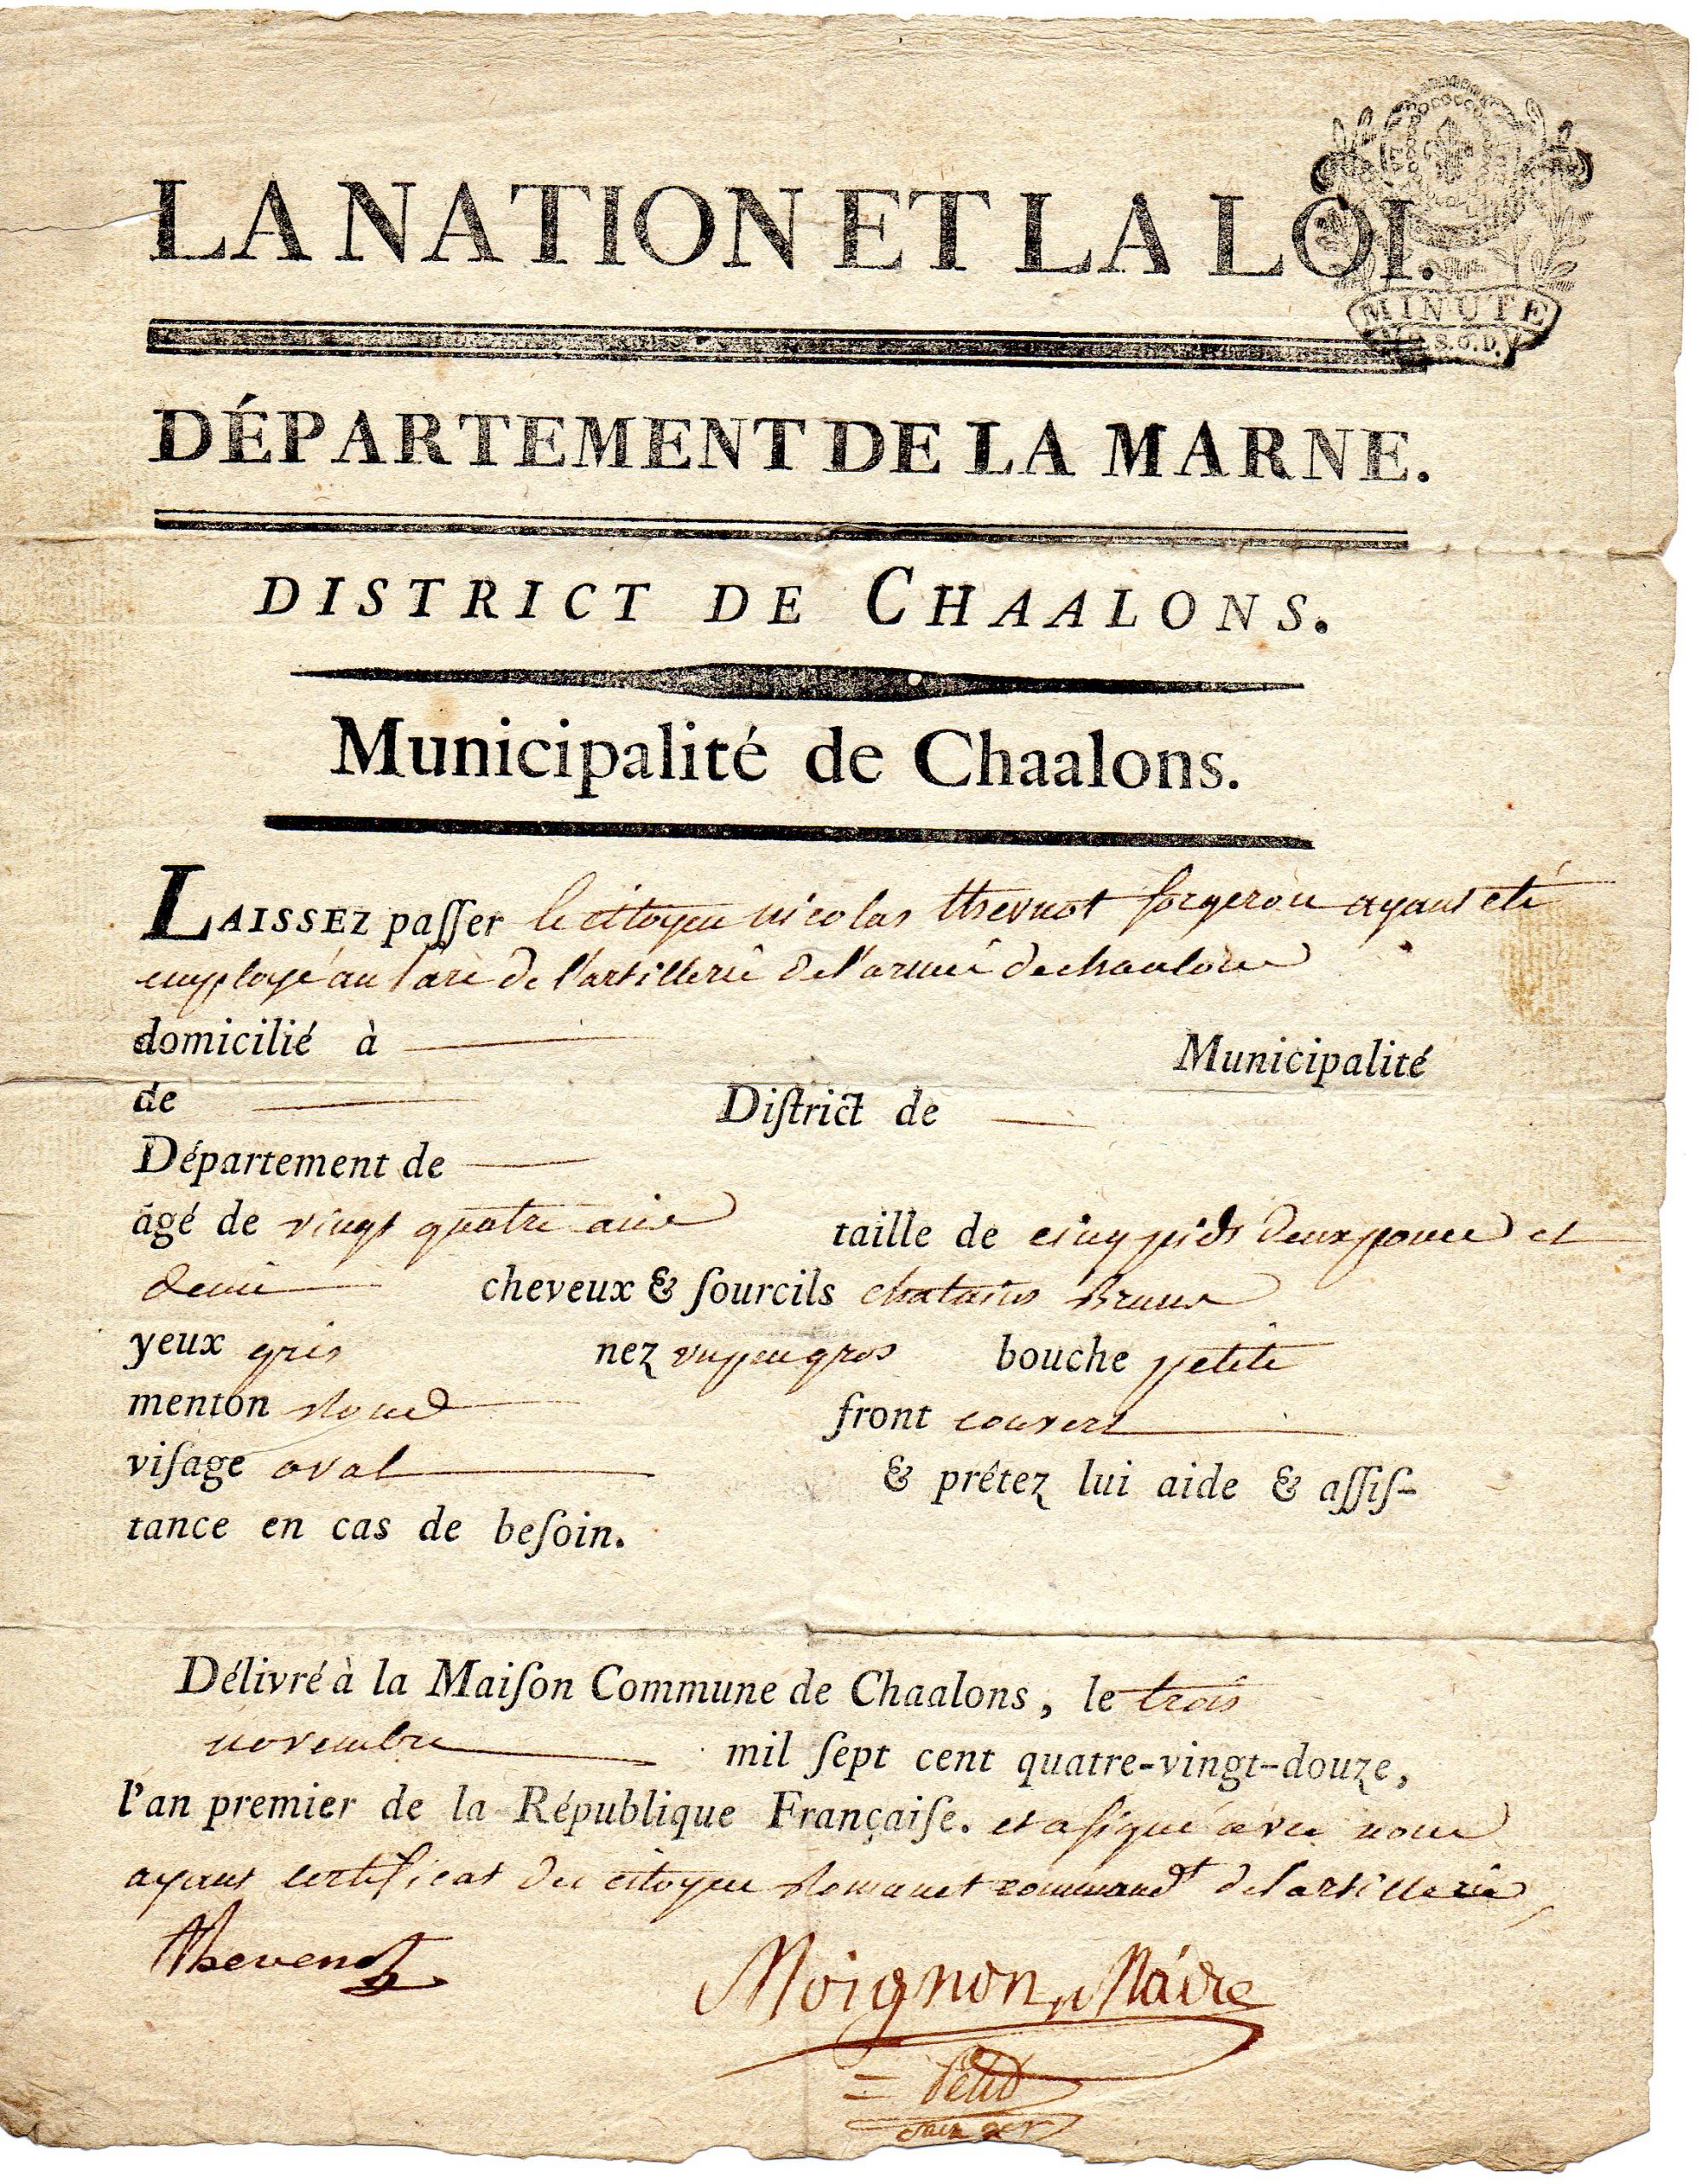 LA NATION ET LA LOI.
MINUTE
S.6.D.
DÉPARTEMENT DE LA MARNE.
DISTRICT DE CHAALONS.
Municipalité de Chaalons.
LAISSEZ paſſer le citoyen nicolas thevnot forgeron ayant eté
employé au parc de l'artillerie de l'armée de chaalons
domicilié à Municipalité
de Diſtrict de
Département de
âgé de vingt quatre ans taille de cinq pieds deux pouces et
demi cheveux & ſourcils chatains Bruns
yeux gris nez un peu gros bouche petite
menton Rond front couvert
viſage oval & prêtez lui aide & aſſiſ-
tance en cas de beſoin.
Délivré à la Maiſon Commune de Chaalons, le trois
novembre mil ſept cent quatre-vingt-douze,
l'an premier de la République Françaiſe. et a signé avec nous
ayant certificat du citoyen Romanet commandt de l'artillerie
Thevenot
Moignon, Maire
Petit